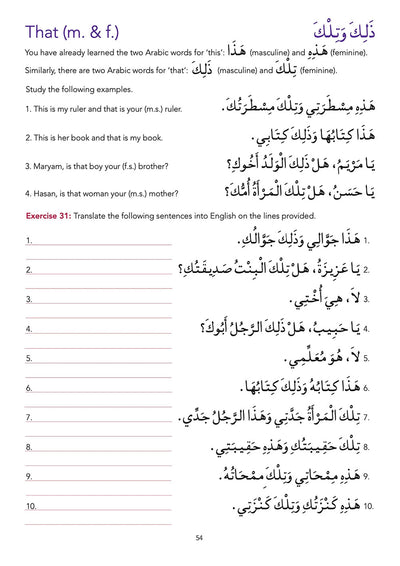 That (m. & f.) ذَلِكَ وَتِلْكَ
You have already learned the two Arabic words for 'this': هَذَا (masculine) and هَذِهِ (feminine).
Similarly, there are two Arabic words for 'that': ذَلِكَ (masculine) and تِلْكَ (feminine).
Study the following examples.
1. This is my ruler and that is your (m.s.) ruler. هَذِهِ مِسْطَرَتِي وَتِلْكَ مِسْطَرَتُكَ.
2. This is her book and that is my book. هَذَا كِتَابُهَا وَذَلِكَ كِتَابِي.
3. Maryam, is that boy your (f.s.) brother? يَا مَرْيَمُ، هَلْ ذَلِكَ الْوَلَدُ أَخُوكِ؟
4. Hasan, is that woman your (m.s.) mother? يَا حَسَنُ، هَلْ تِلْكَ الْمَرْأَةُ أُمُّكَ؟
Exercise 31: Translate the following sentences into English on the lines provided.
1. 1. هَذَا جَوَّالِي وَذَلِكَ جَوَّالُكِ.
2. 2. يَا عَزِيزَةُ، هَلْ تِلْكَ الْبِنْتُ صَدِيقَتُكِ؟
3. 3. لاَ، هِيَ أُخْتِي.
4. 4. يَا حَبِيبُ، هَلْ ذَلِكَ الرَّجُلُ أَبُوكَ؟
5. 5. لاَ، هُوَ مُعَلِّمِي.
6. 6. هَذَا كِتَابُهُ وَذَلِكَ كِتَابُهَا.
7. 7. تِلْكَ الْمَرْأَةُ جَدَّتِي وَهَذَا الرَّجُلُ جَدِّي.
8. 8. تِلْكَ حَقِيبَتُكِ وَهَذِهِ حَقِيبَتِي.
9. 9. هَذِهِ مِمْحَاتِي وَتِلْكَ مِمْحَاتُهُ.
10. 10. هَذِهِ كَنْزَتُكِ وَتِلْكَ كَنْزَتِي.
54